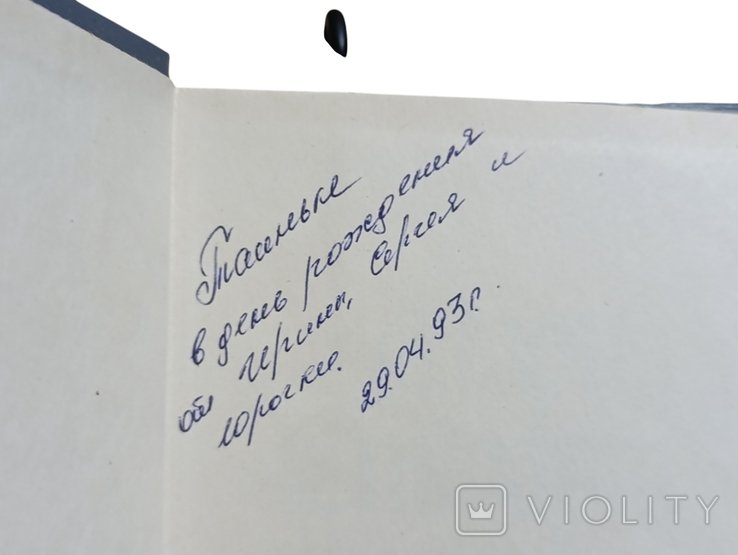 Таиньке
в день рождения
от Ирины, Сергея и
Юрочки.
29.04.93г.
VIOLITY